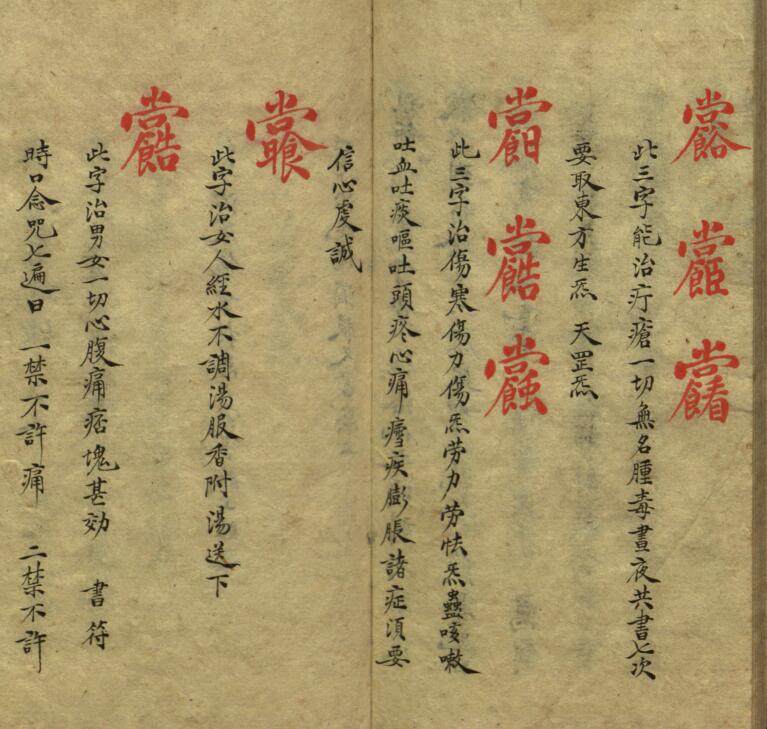 此三字能治疔瘡一切無名腫毒晝夜共書七次
要取東方生炁 天罡炁
此三字治傷寒傷力傷炁勞力勞怯炁蠱咳嗽
吐血吐痰嘔吐頭疼心痛疾膨脹諸症須要
信心虔誠
此字治女人經水不調湯服香附湯送下
此字治男女一切心腹痛痞塊甚効 書符
時口念咒七遍曰 一禁不許痛 二禁不許